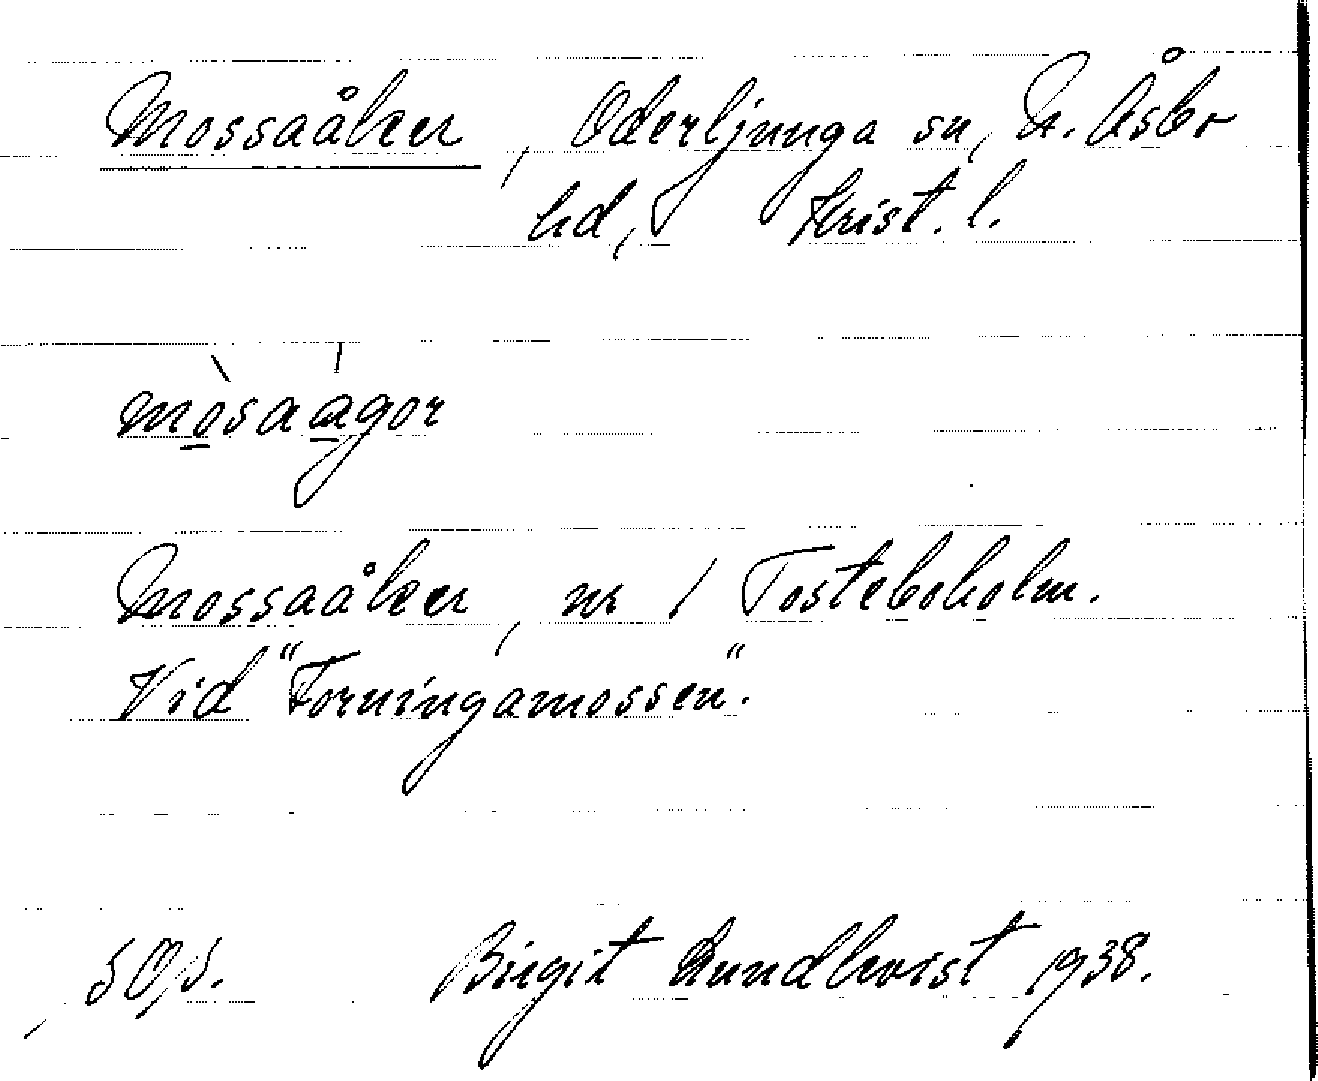 Mossaåker, Oderljunga sn, N. Åsbo
hd, Krist. l.
mòsaágor
Mossaåker, nr 1 Tosteboholm.
Vid "Forningamossen".
Birgit Lundkvist 1938.